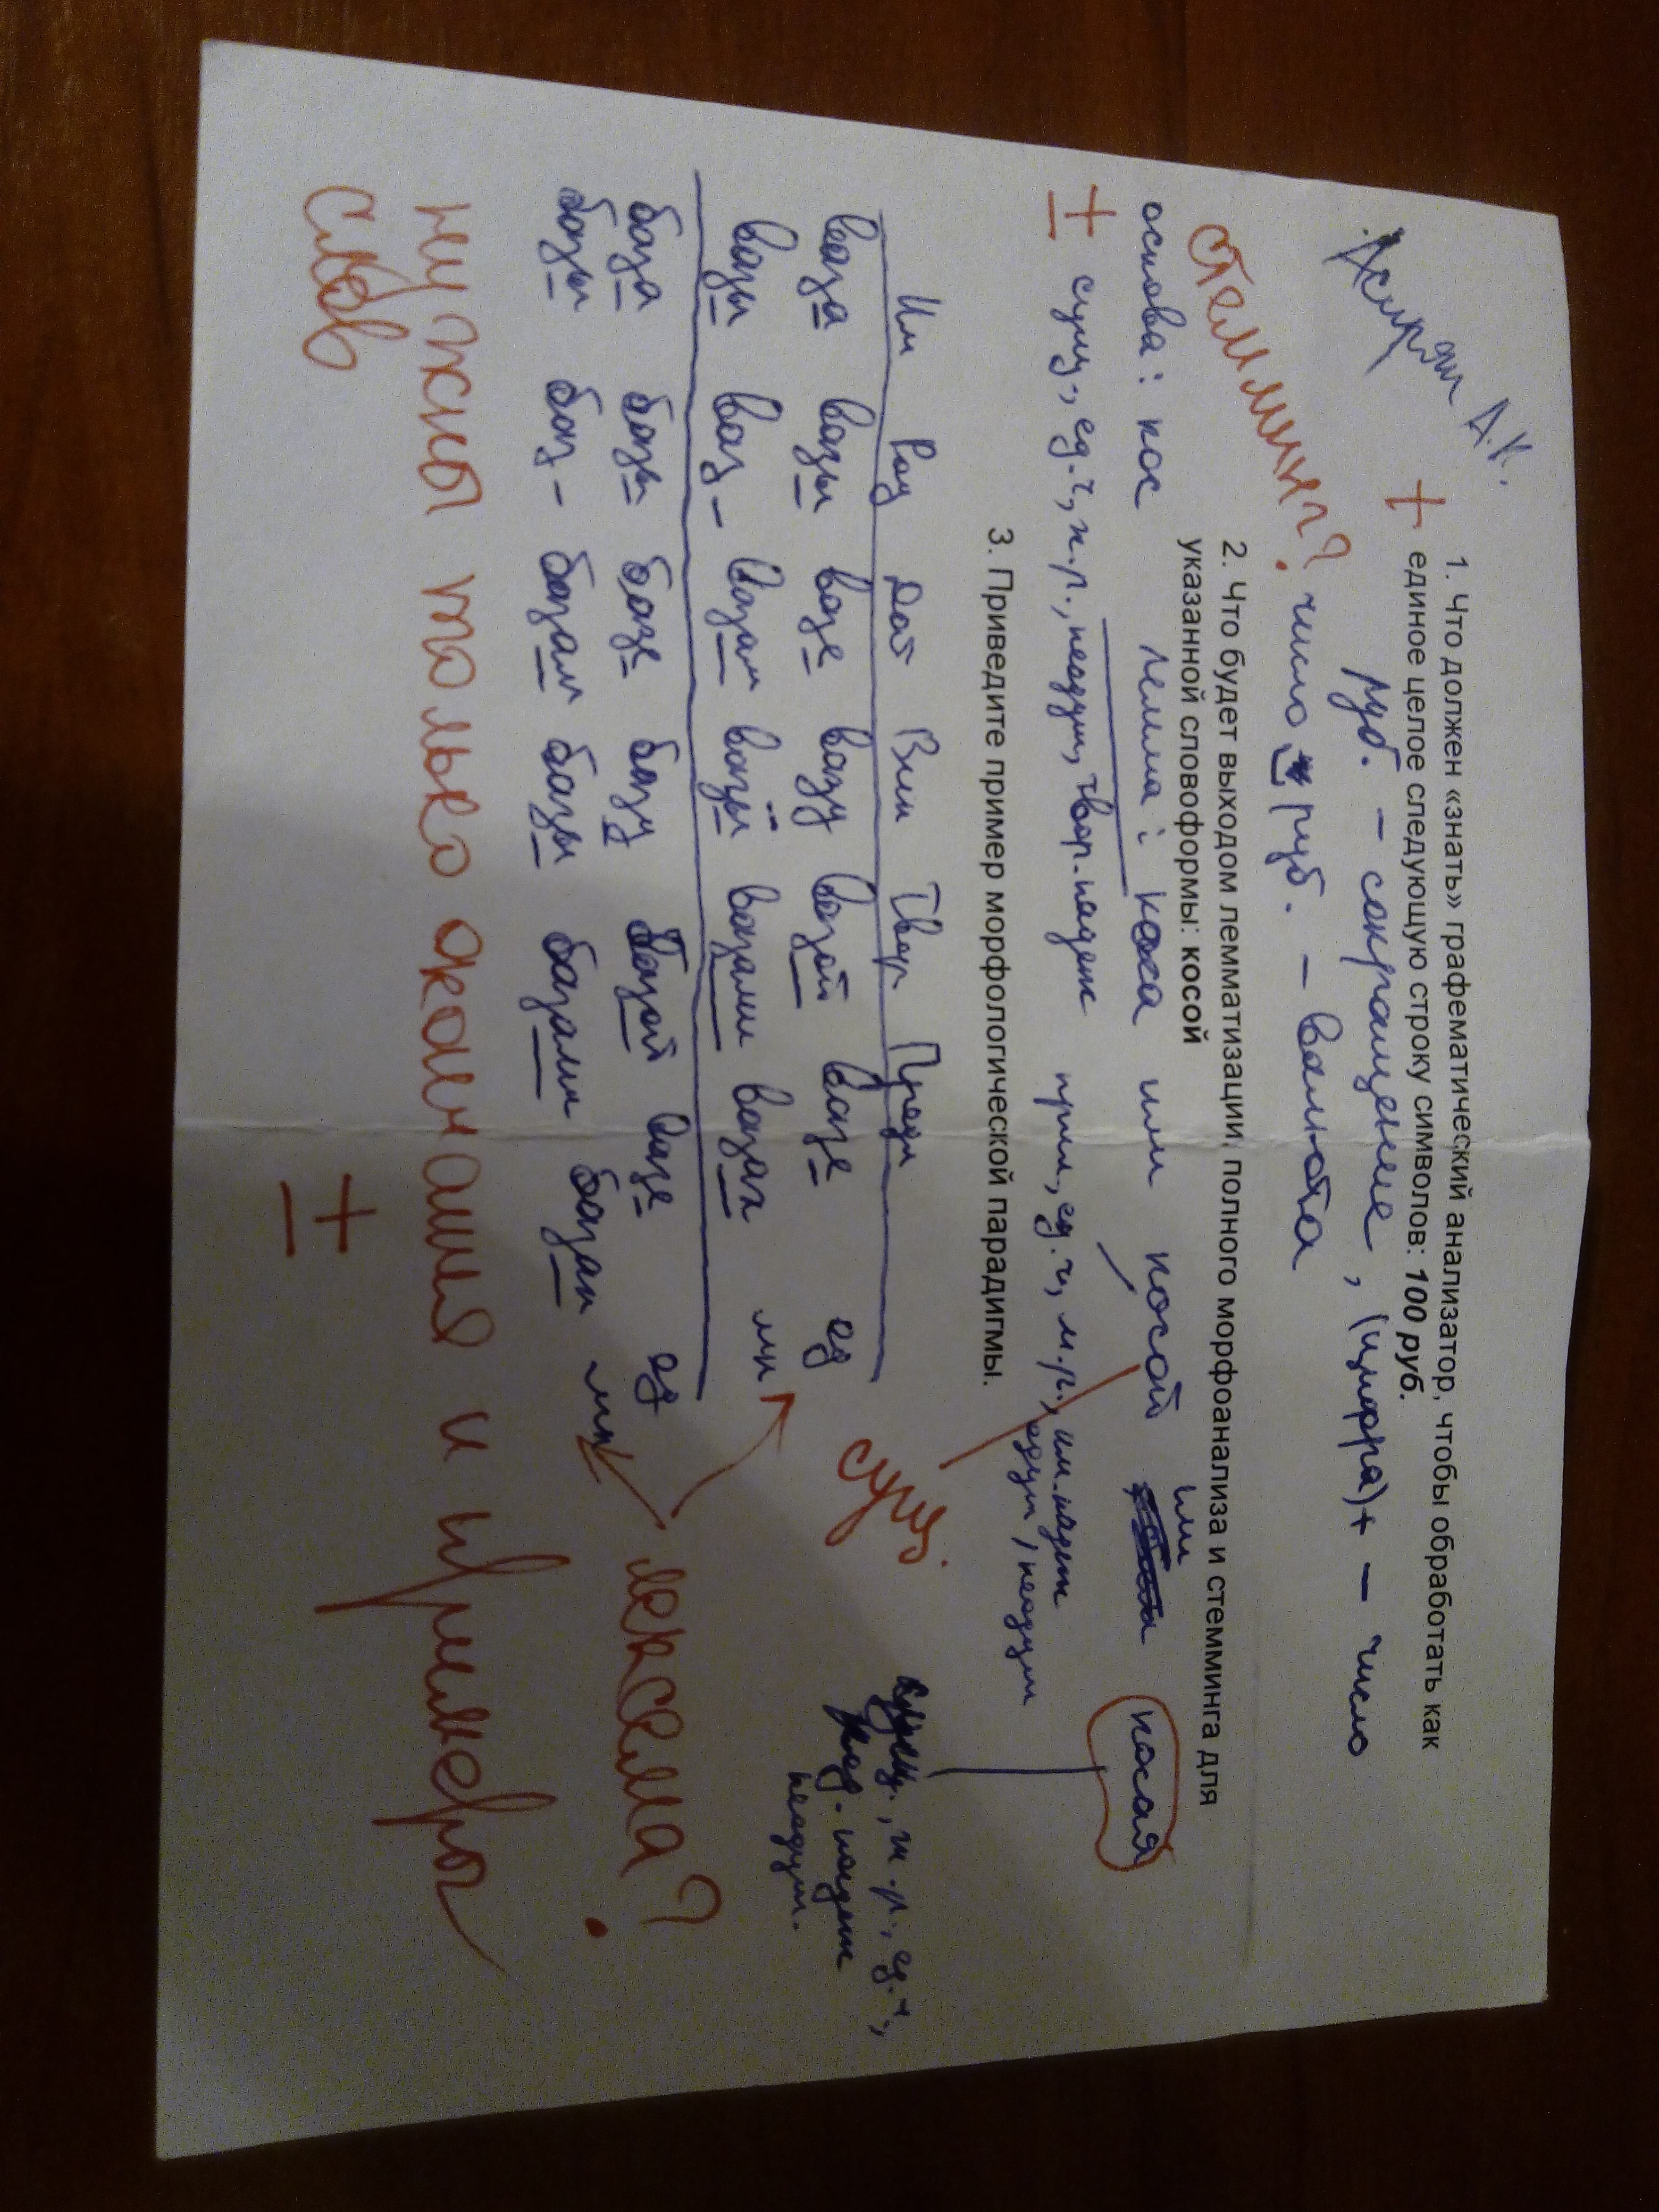 А.К.
1. Что должен «знать» графематический анализатор, чтобы обработать как
+ единое целое следующую строку символов: 100 руб.
руб. – сокращение, (цифра)+ – число
число руб. – валюта
стемминг?
2. Что будет выходом лемматизации, полного морфоанализа и стемминга для
указанной словоформы: косой
основа: кос лемма: коса или косой или косая
± сущ., ед.ч, ж.р., неодуш, твор.падеж прил, ед.ч, м.р., им.падеж
одуш, неодуш
сущ., ж.р., ед.ч,
падеж
неодуш.
сущ.
3. Приведите пример морфологической парадигмы.
Им Род Дат Вин Твор Предл
ваза вазы вазе вазу вазой вазе ед
вазы ваз- вазам вазы вазами вазах мн
лексема?
база базы базе базу базой базе ед
базы баз- базам базы базами базах мн
нужны только окончания и примеры
слов
±